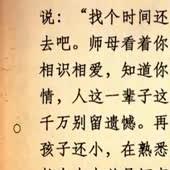 说：“找个时间还
去吧。师母看着你
相识相爱，知道你
情，人这一辈子这
千万别留遗憾。再
孩子还小，在熟悉